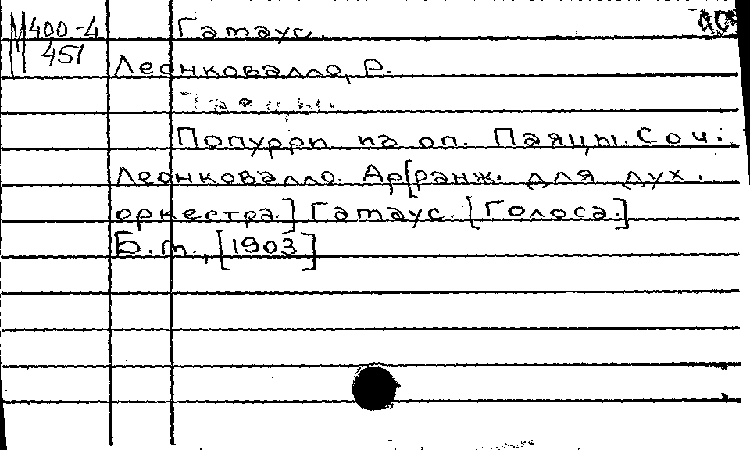 М 400-4 Гатаус.
451 Леонковалло, Р.
Паяцы.
Попурри на оп. Паяцы. Соч.
Леонковалло. Ар[ранж. для дух.
оркестра.] Гатаус. [Голоса.]
Б.м., [1903]